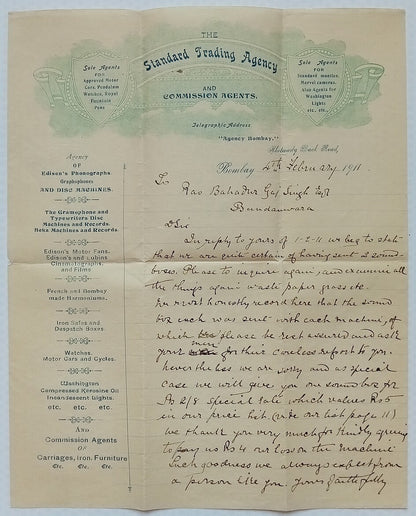 THE
Standard Trading Agency
AND
COMMISSION AGENTS.
Telegraphic Address
"Agency Bombay."
Sole Agents
FOR
Approved Motor
Cars, Pendulum
Watches, Royal
Fountain
Pens
Sole Agents
FOR
Standard mantles,
Marvel cameras,
Also Agents for
Washington
Lights
etc.
Road,
Bombay 4th February 1911.
Agency
OF
Edison's Phonographs
Graphophones
AND DISC MACHINES.
The Gramophone and
Typewriters Disc
Machines and Records.
Beka Machines and Records.
Edison's Motor Fans.
Edison's and Lubins
Cinematographs,
and Films
French and Bombay
made Harmoniums.
Iron Safes and
Despatch Boxes.
Watches,
Motor Cars and Cycles.
Washington
Compressed Kerosine Oil
Incandescent Lights.
etc. etc. etc.
AND
Commission Agents
OF
Carriages, Iron, Furniture
Etc. Etc. Etc.
To
Rao Bahadur Gaj Singh Esqr
Bundanwara
D Sir
In reply to yours of 1-2-11 we beg to state
that we are quite certain of having sent 2 sound
boxes. Please to inquire again, and examine all
the things again waste paper grass etc.
honestly record here that the sound
box each was sent with each machine, of
which please be rest assured and ask
your men for their careless report to you.
Nevertheless we are sorry and as special
case we will give you one sound box for
Rs 2/8 special rate which values Rs 5
in our price list (vide our list page 11)
We thank you very much for kindly agreeing
to pay us Rs 4 our loss on the machine
Such goodness we always expect from
a person like you. Yours faithfully